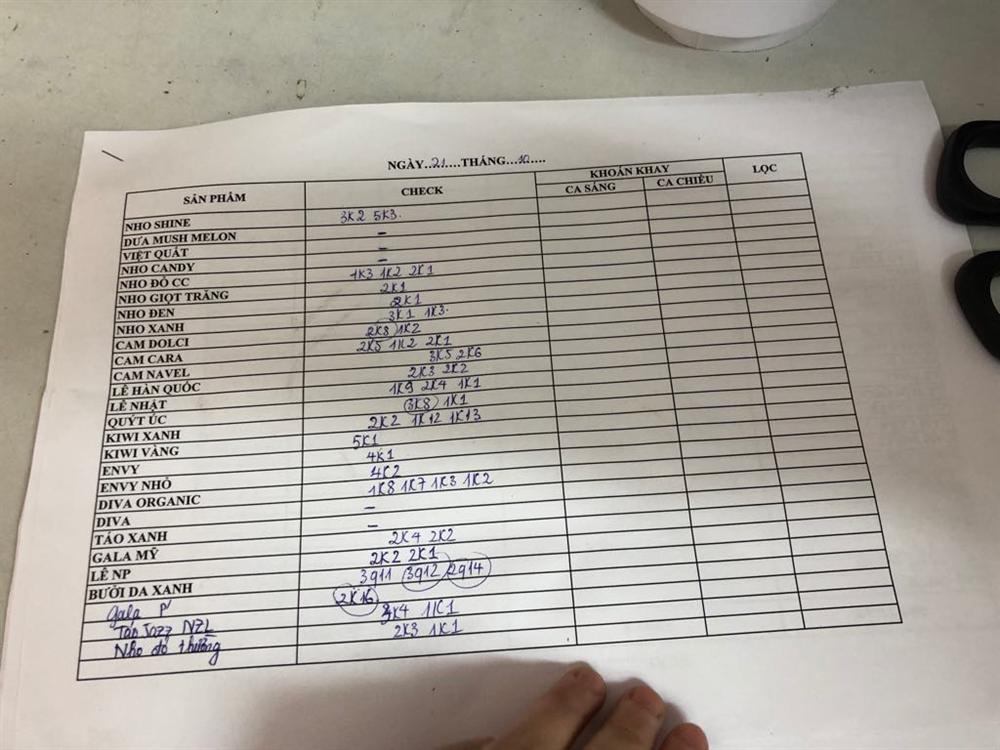 NGÀY..21....THÁNG...10....
SẢN PHẨM CHECK KHOÁN KHAY LỌC
CA SÁNG CA CHIỀU
NHO SHINE 3K2 5K3.
DƯA MUSH MELON –
VIỆT QUẤT –
NHO CANDY –
NHO ĐỎ CC 1K3 1K2 2K1
NHO GIỌT TRĂNG 2K1
NHO ĐEN 2K1
NHO XANH 3K1 1K3.
CAM DOLCI 2K8 1K2
CAM CARA 2K5 1K2 2K1
CAM NAVEL 3K5 2K6
LÊ HÀN QUỐC 2K3 2K2
LÊ NHẬT 1K9 2K4 1K1
QUÝT ÚC 3K8 1K1
KIWI XANH 2K2 1K12 1K13
KIWI VÀNG 5K1
ENVY 4K1
ENVY NHỎ 4K2
DIVA ORGANIC 1K8 1K7 1K3 1K2
DIVA –
TÁO XANH –
GALA MỸ 2K4 2K2
LÊ NP 2K2 2K1
BƯỞI DA XANH 3g11 3g12 2g14
Gala P 2K16
Táo Jazz NZL 3K4 1K1
Nho đỏ thường 2K3 1K1